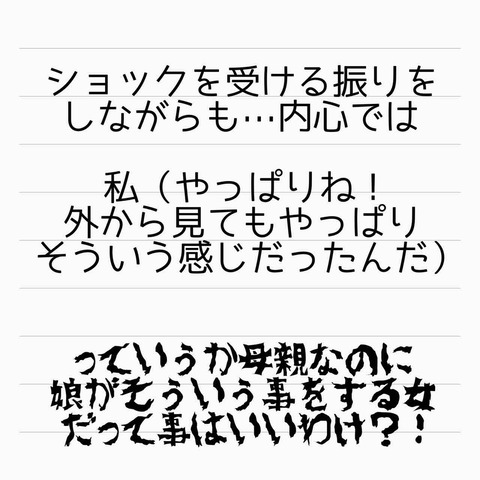 ショックを受ける振りを
しながらも…内心では
私（やっぱりね！
外から見てもやっぱり
そういう感じだったんだ）
っていうか母親なのに
娘がそういう事をする女
だって事はいいわけ？！